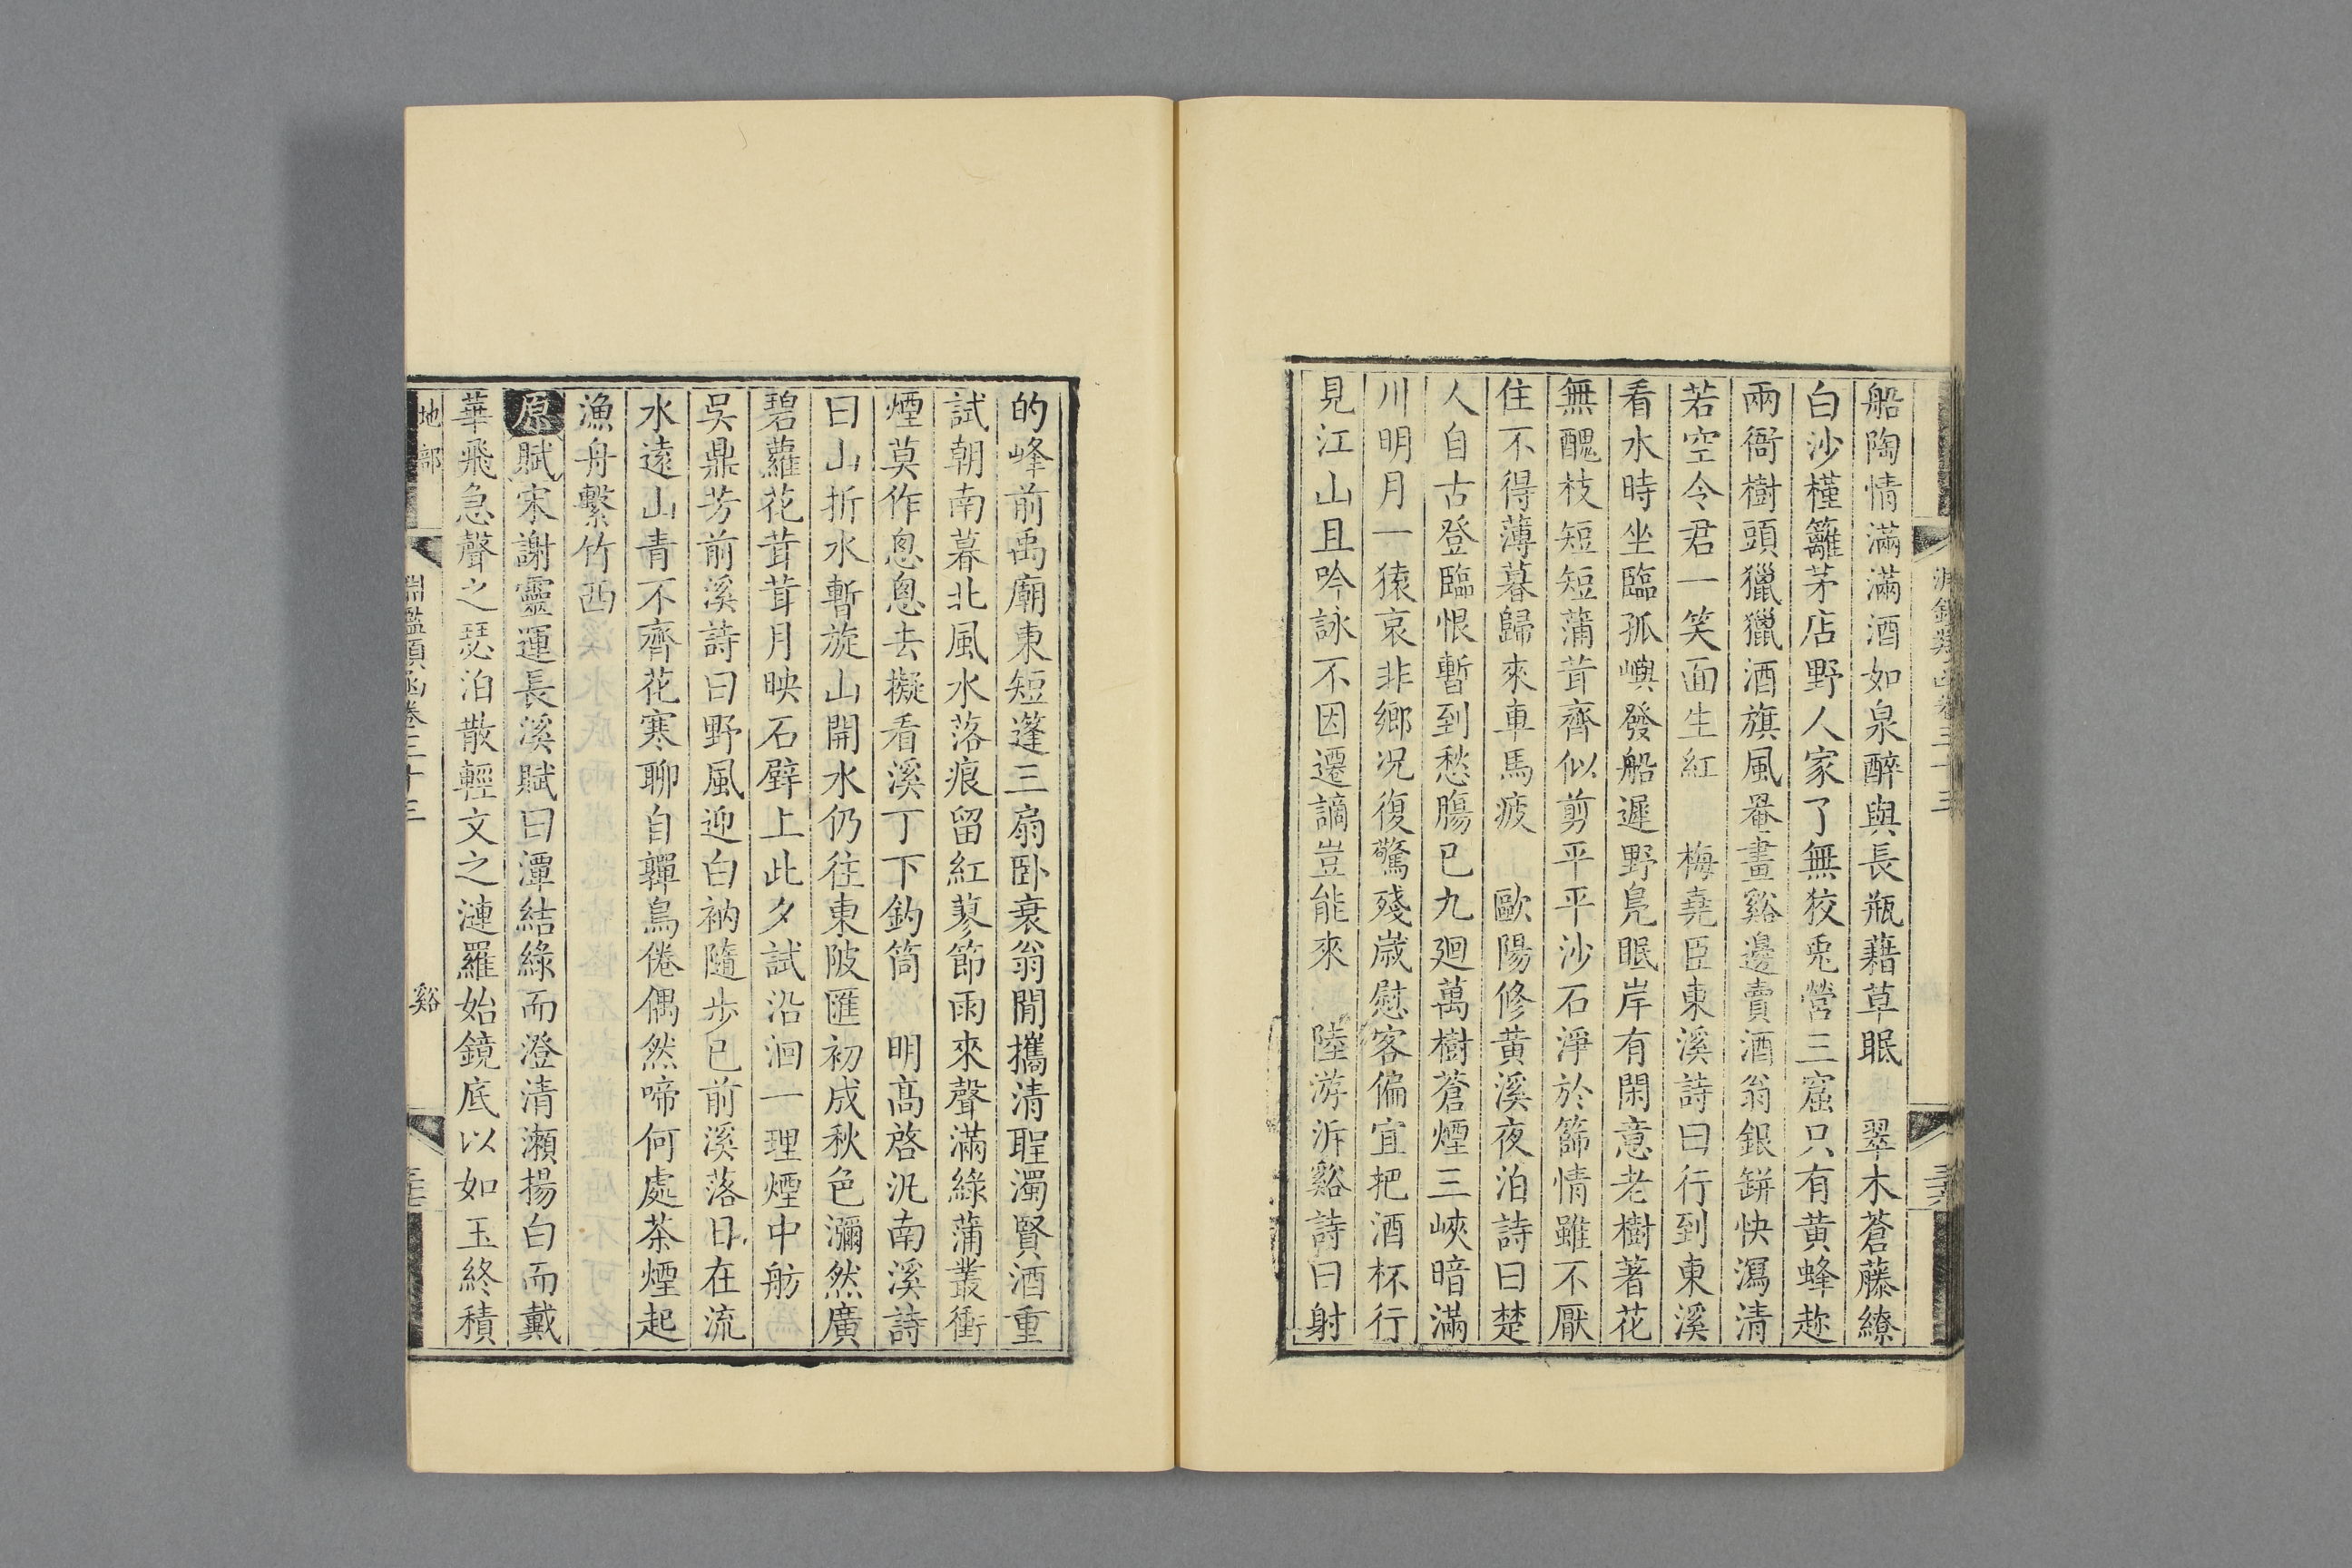 船陶情滿滿酒如泉醉與長瓶藉草眠　翠木蒼藤繚
白沙槿籬茅店野人家了無狡兎營三窟只有黄蜂趂
兩衙樹頭獵獵酒旗風罨畫谿邊賣酒翁銀缾快瀉清
若空令君一笑面生紅　梅堯臣東溪詩曰行到東溪
看水時坐臨孤嶼發船遲野鳬眠岸有閑意老樹著花
無醜枝短短蒲茸齊似剪平平沙石淨於篩情雖不厭
住不得薄暮歸來車馬疲　歐陽修黄溪夜泊詩曰楚
人自古登臨恨暫到愁腸已九廻萬樹蒼煙三峽暗滿
川明月一猿哀非鄉况復驚殘歳慰客偏宜把酒杯行
見江山且吟詠不因遷謫豈能來　陸游泝谿詩曰射
的峰前禹廟東短蓬三扇卧衰翁閒攜清聖濁賢酒重
試朝南暮北風水落痕留紅蓼節雨來聲滿綠蒲叢衝
煙莫作怱怱去擬看溪丁下釣筒　明髙啓汎南溪詩
曰山折水暫旋山開水仍往東陂匯初成秋色瀰然廣
碧蘿花茸茸月映石壁上此夕試沿洄一理煙中舫
吳鼎芳前溪詩曰野風迎白衲隨步已前溪落日在流
水遠山青不齊花寒聊自嚲鳥倦偶然啼何處茶煙起
漁舟繫竹西
原賦宋謝靈運長溪賦曰潭結綠而澄清瀬揚白而戴
華飛急聲之瑟泊散輕文之漣羅始鏡底以如玉終積
地部
淵鑑類函卷三十三
谿